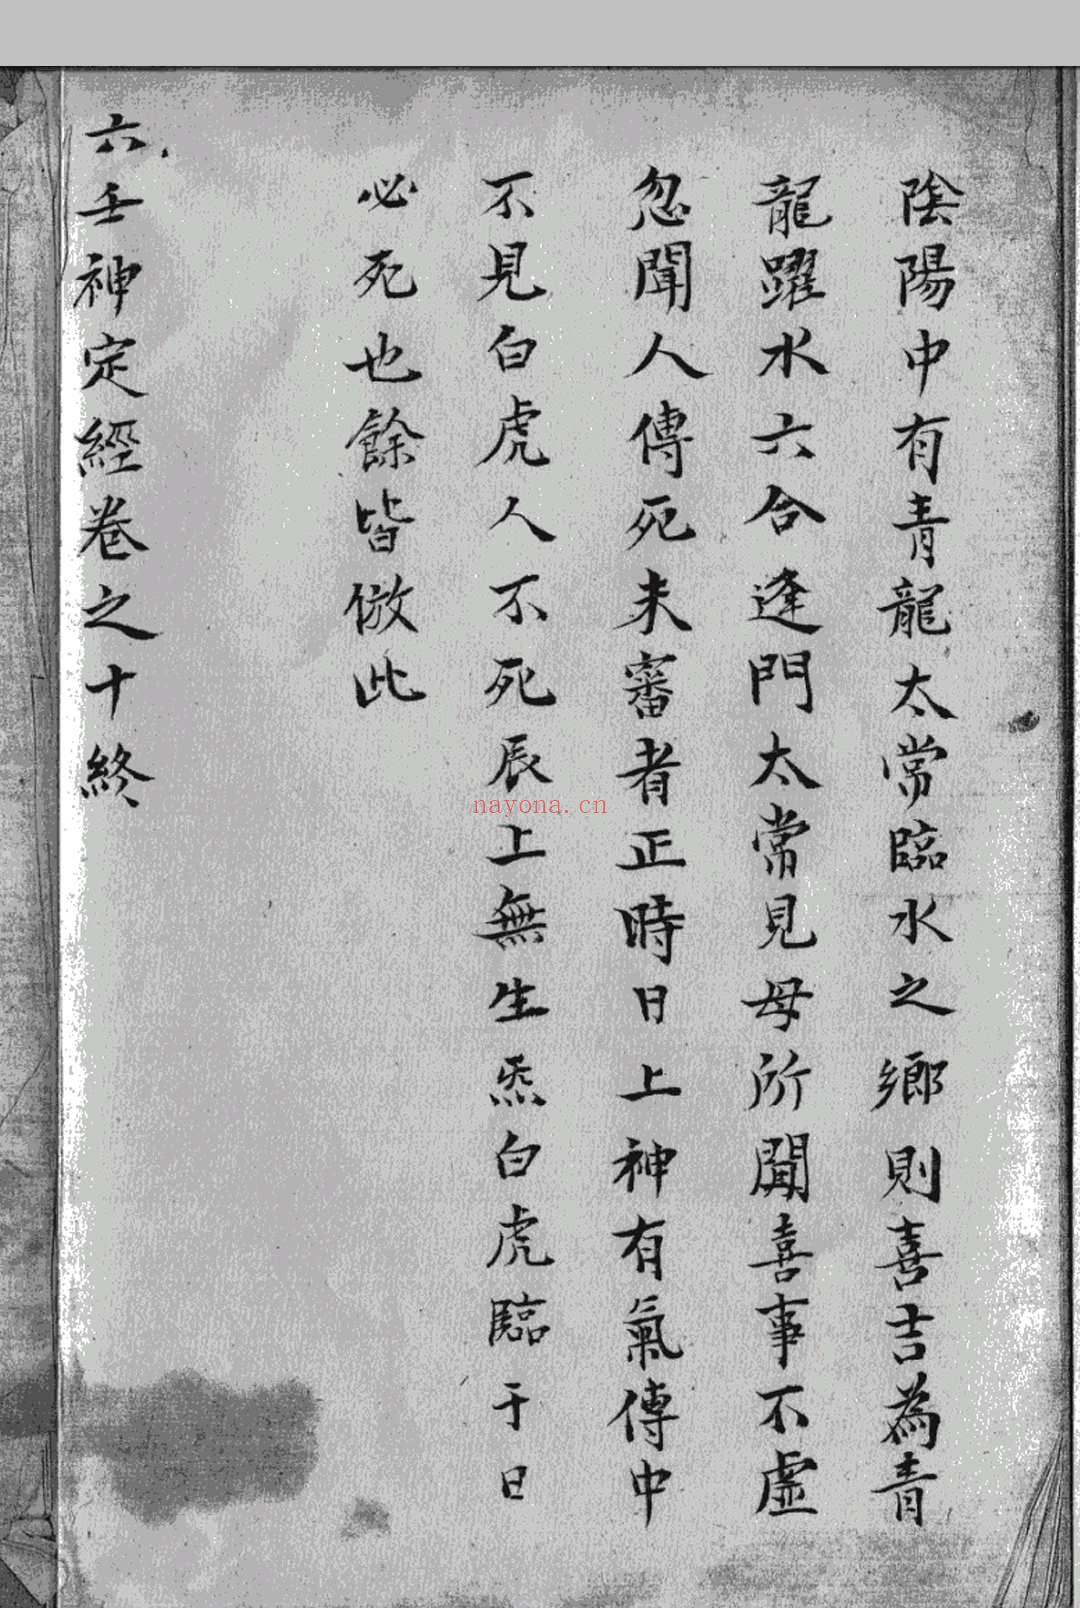 陰陽中有青龍太常臨水之鄉則喜吉為青
龍躍水六合逢門太常見母所聞喜事不虛
忽聞人傳死未審者正時日上神有氣傳中
不見白虎人不死辰上無生炁白虎臨于日
必死也餘皆倣此
六壬神定經卷之十終
nayona.cn